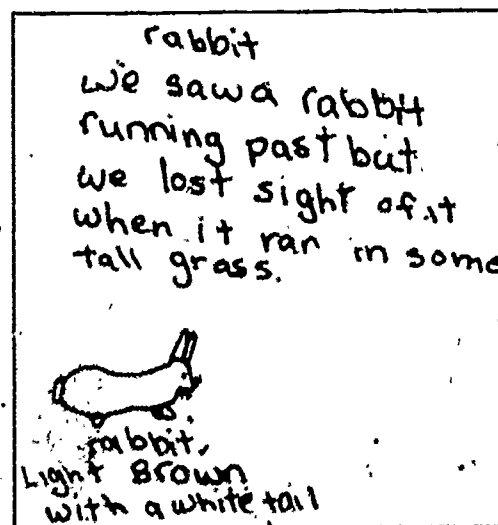 rabbit
we saw a rabbit
running past but
we lost sight of it
when it ran in some
tall grass.
rabbit.
Light Brown
with a white tail